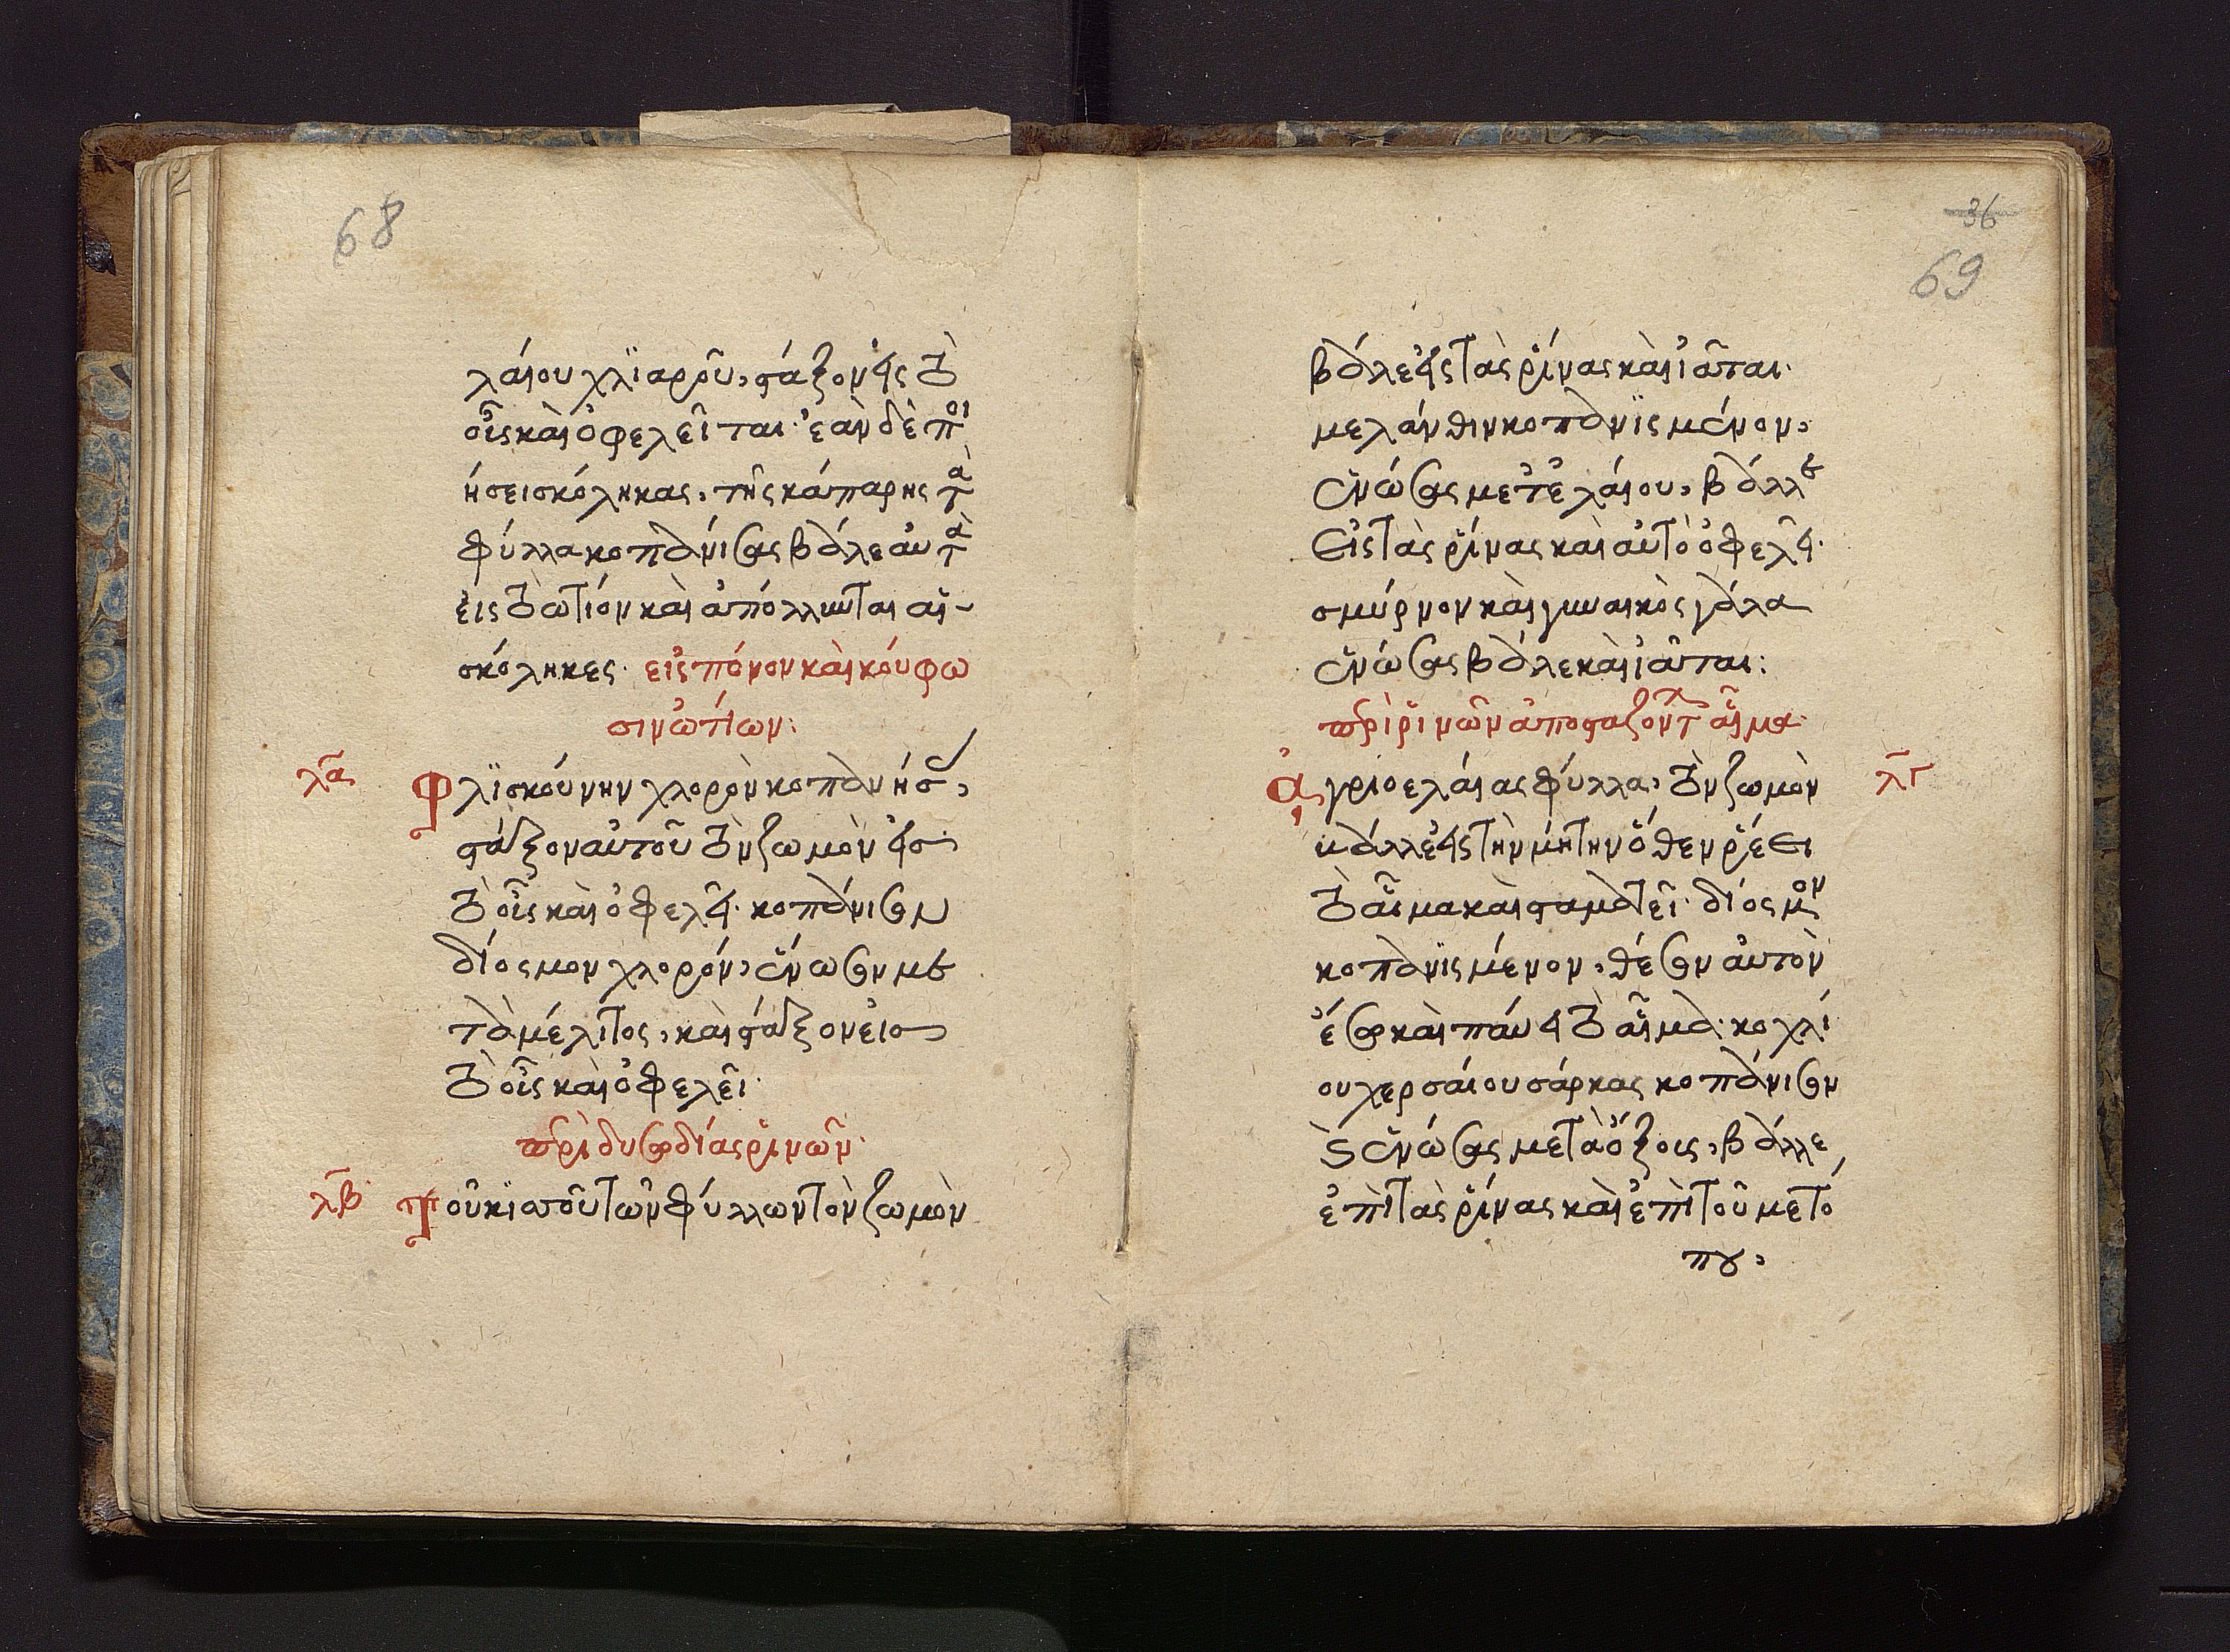 68
λάιου χλϊαροῦ, στάξον εἰς τὸ
οὖς καὶ ὀφελεῖται· ἐὰν δὲ ποι
ήσει σκόληκας, τῆς κάπαρης τὰ
φύλλα κοπάνισας βάλε αὐτὰ
εἰς τὸ ὠτίον καὶ ἀπόλλυνται αἱ
σκόληκες· εἰς πόνον καὶ κούφω
σιν ὠτίων:
λα Φλϊσκούνην χλορὸν κοπάνησ,
στάξον αὐτοῦ τὸν ζωμὸν εἰς
τὸ οὖς καὶ ὀφελεῖ· κοπάνισον
δίοσμον χλορόν, ἕνωσον με
τὰ μέλιτος, καὶ στάξον εἰς
τὸ οὖς καὶ ὀφελεῖ·
περὶ δυσοδίας ῥινῶν·
λβ Τοῦ κισσοῦ τῶν φύλλων τὸν ζωμὸν
36
69
βάλε εἰς τὰς ῥίνας καὶ ἰᾶται·
μελάνθιν κοπανϊσμένον,
ἑνώσας μετ ἐλάιου, βάλλε
εἰς τὰς ῥίνας καὶ αὐτὸ ὀφελεῖ·
σμύρνον καὶ γυναικὸς γάλα
ἑνώσας βάλε καὶ ἰᾶται:
περὶ ῥινῶν ἀποσταζόντ αἷμα·
Ἀγριοελάιας φύλλα, τὸν ζωμὸν λγ
βάλλε εἰς τὴν μήτην ὅθεν ῥέει
τὸ αἷμα καὶ σταματεῖ· δίοσμον
κοπανϊσμένον, θέσον αὐτὸν
ἔσω καὶ παύει τὸ αἷμα· κοχλί
ου χερσάιου σάρκας κοπάνισον
καὶ ἑνώσας μετὰ ὄξους, βάλλε
ἐπὶ τὰς ῥίνας καὶ ἐπὶ τοῦ μετό
που,